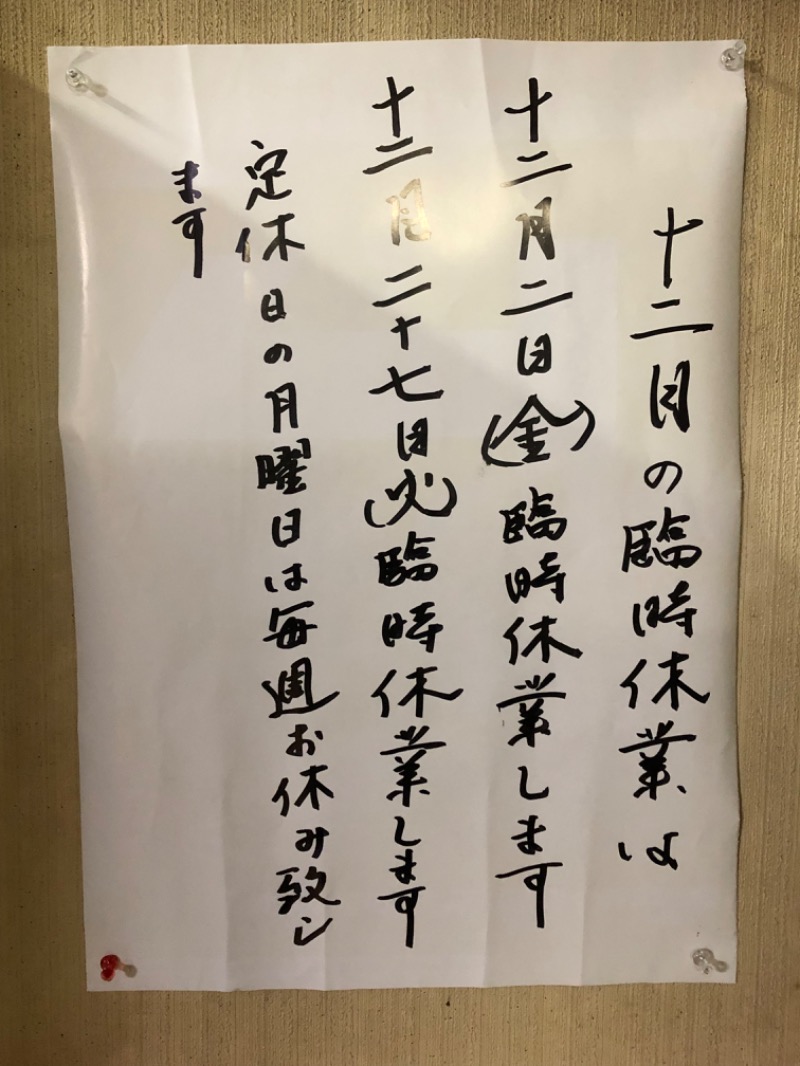 十二月の臨時休業は
十二月二日(金)臨時休業します
十二月二十七日(火)臨時休業します
定休日の月曜日は毎週お休み致し
ます